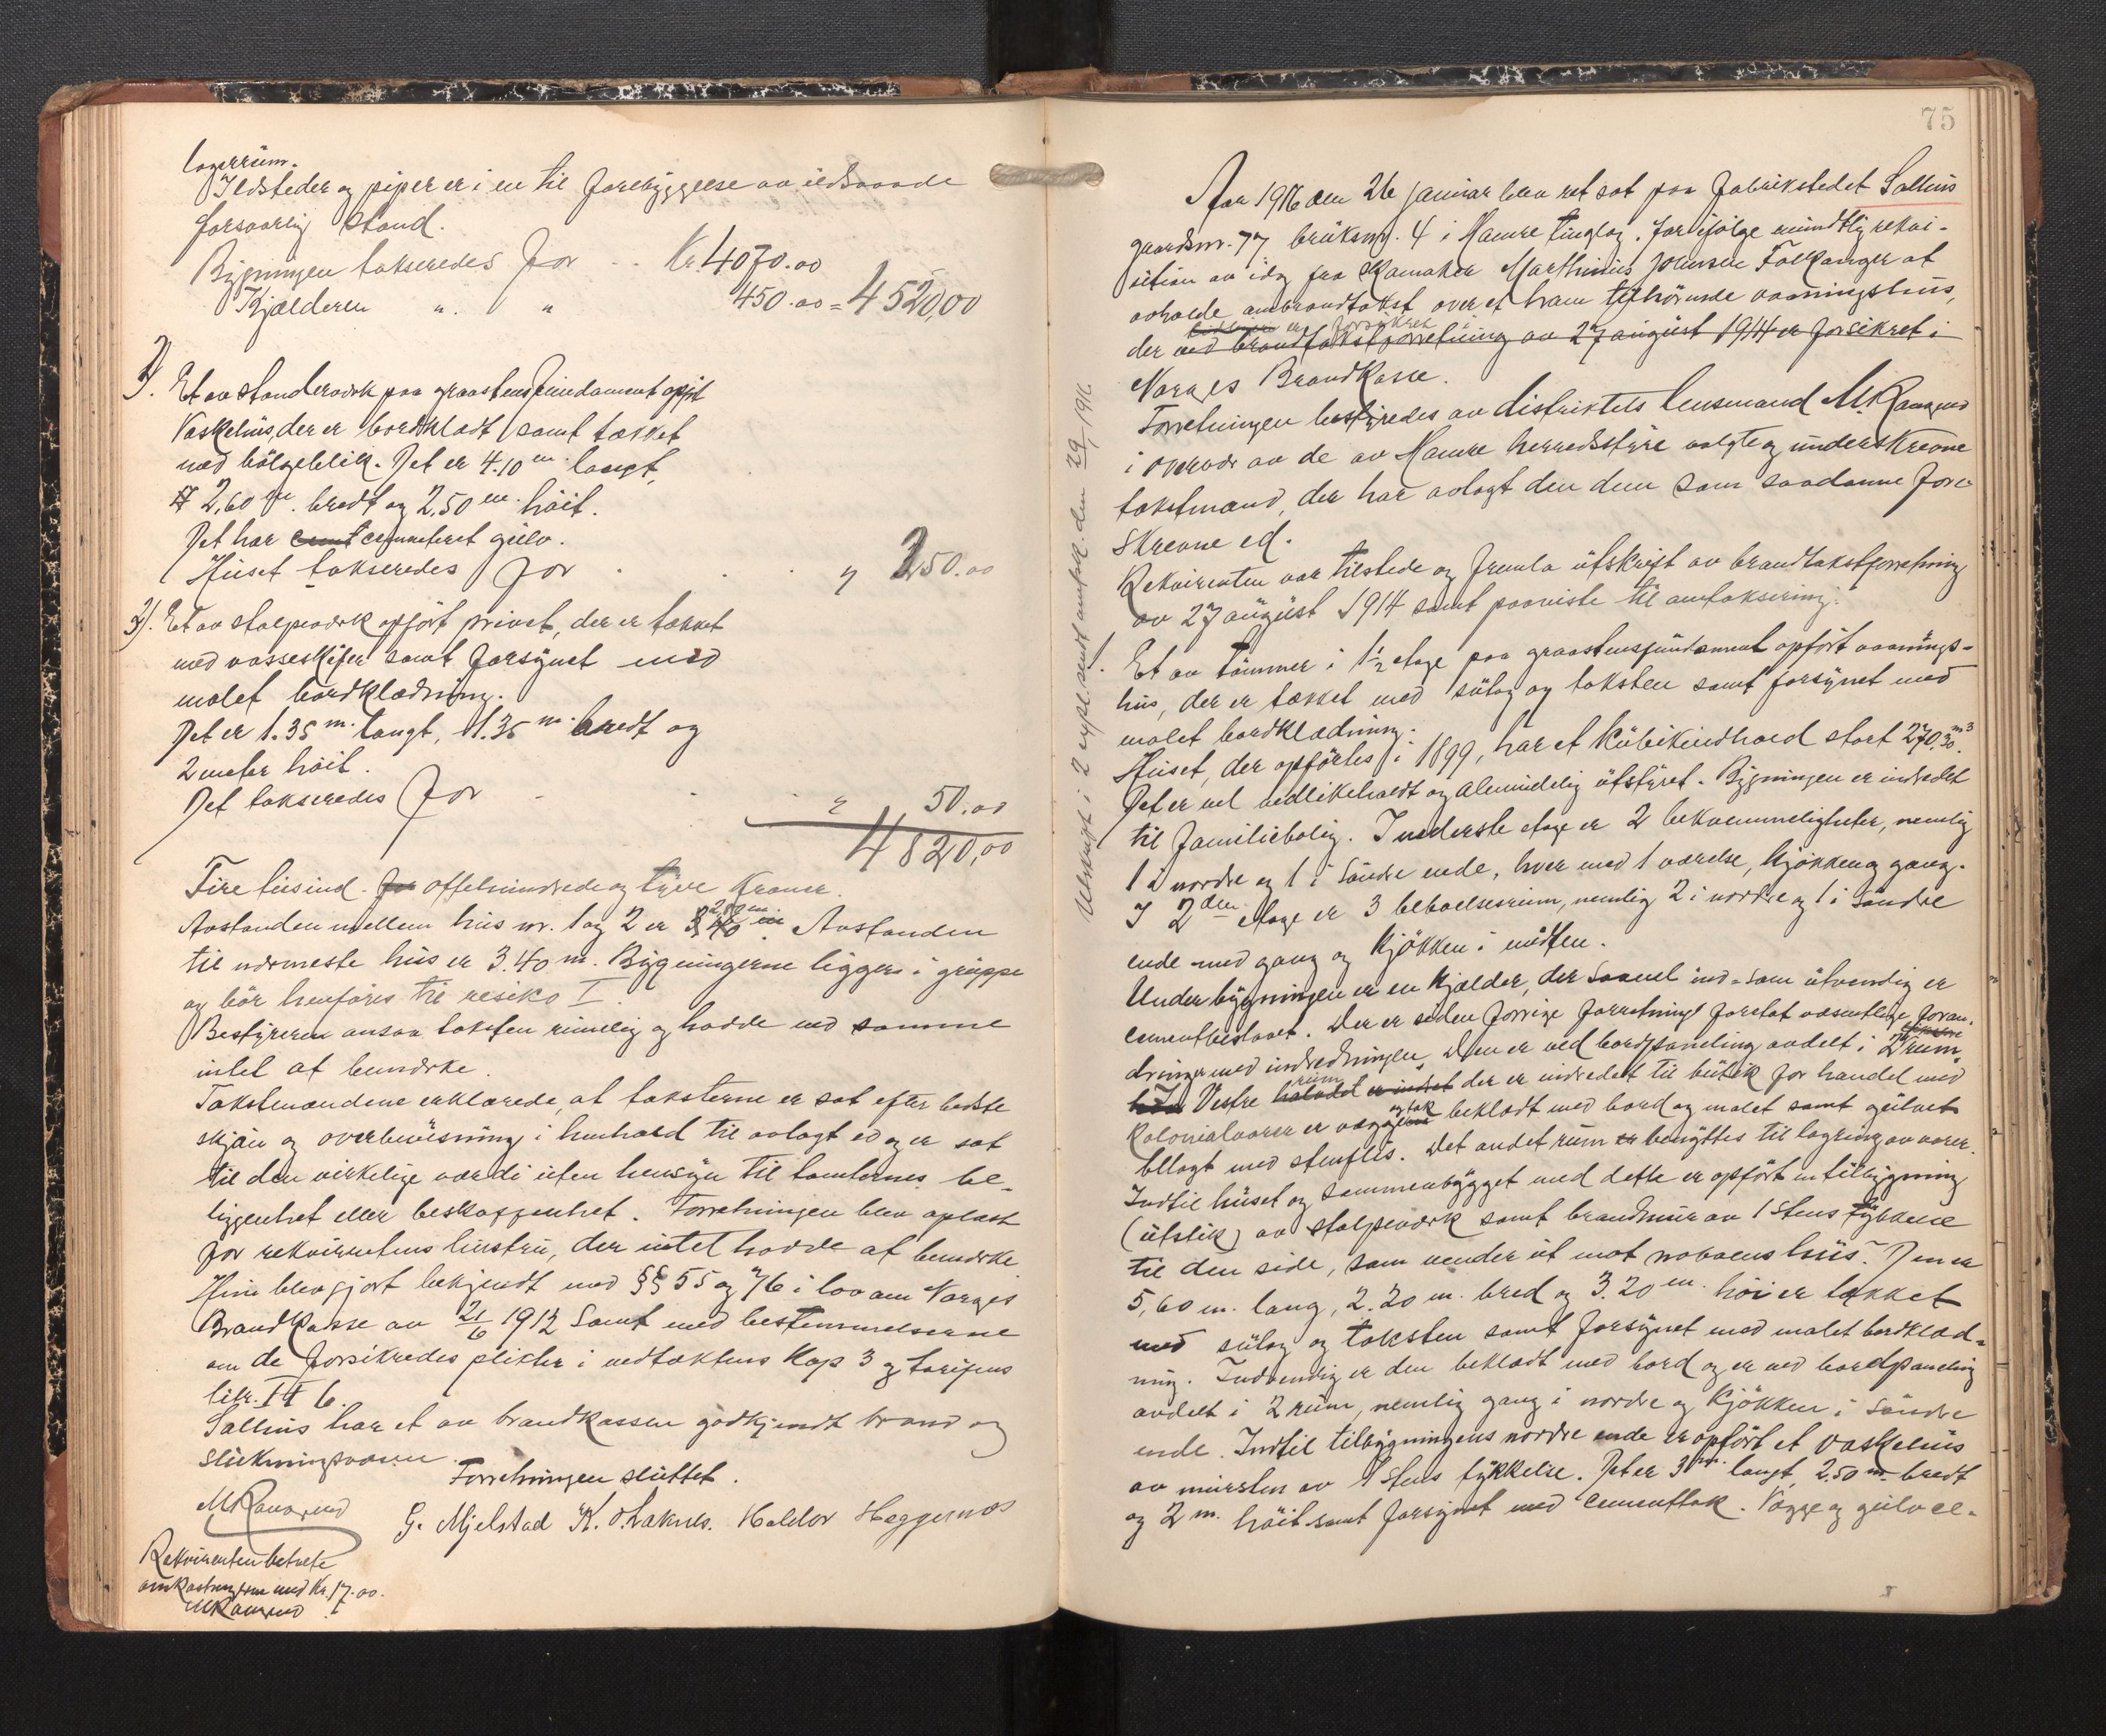 lagerrüm.
Ildsteder og piper er i en til forebyggelse av ildsvaade
forsvarlig stand.
Bygningen takseredes for - - Kr. 4070.00
Kjælderen " " 450.00 = 4520,00
2). Et av standerværk paa graastensfundament opført
Vaskehüs, der er bordklædt samt tækket
med bølgeblik. Det er 4.10 m. langt,
2,60 m. bredt og 2,50 m. høit.
Det har cementeret gülv.
Hüset takseredes for . . . " 250.00
3). Et av stolpeværk opført privet, der er tækket
med vosseskifer samt forsynet med
malet bordklædning.
Det er 1.35 m. langt, 1.35 m. bredt og
2 meter høit.
Det takseredes for - . . " 50.00
4820,00
Fire tüsind ottehündrede og tyve Kroner.
Avstanden mellem hüs nr. 1 og 2 er 2,80 m. Avstanden
til nærmeste hüs er 3.40 m. Bygningerne ligger i grüppe
og bør henføres til resiko I.
Bestyreren ansaa taksten rimelig og hadde ved samme
intet at bemærke.
Takstmændene erklærede, at taksterne er sat efter bedste
skjøn og overbevisning i henhold til avlagt ed og er sat
til den virkelige værdi üten hensyn til tomternes be-
liggenhet eller beskaffenhet. Forretningen blev oplæst
for rekvirentens hüstrü, der intet hadde at bemærke
Hün blev gjort bekjendt med §§ 55 og 76 i lov om Norges
Brandkasse av 21/6 1912 samt med bestemmelserne
om de forsikredes plikter i vedtæktens Kap 3 og tarifens
litr. II 6.
Salhüs har et av brandkassen godkjendt brand og
slükningsvæsen.
Forretningen slüttet.
MRamsund
G. Mjelstad K. O. Laknes. Haldor Heggernæs
Rekvirenten betalte
omkostningerne med Kr. 17.00.
MRamsund
75
Aar 1916 den 26 janüar blev ret sat paa Fabrikstedet Salhüs
gaardsnr. 77 brüksnr. 4 i Hamre tinglag, for ifølge mündtlig rekvi-
sition av idag fra skomaker Marthinüs Johnsen Falkanger at
avholde ombrandtakst over et ham tilhørende vaaningshüs,
er forsikret i
der ved brandtakstforretning av 27 aügüst 1914 er forsikret i
Norges Brandkasse.
Forretningen bestyredes av distriktets lensmand M. Ramsund
i overvær av de av Hamre herredsstyre valgte og ünderskrevne
takstmænd, der har avlagt den dem som saadanne fore-
skrevne ed.
Rekvirenten var tilstede og fremla ütskrift av brandtakstforretning
av 27 aügüst 1914 samt paaviste til omtaksering:
1. Et av tømmer i 1½ etage paa graastensfündament opført vaanings-
hüs, der er tækket med sütag og taksten samt forsynet med
malet bordklædning.
Hüset, der opførtes i 1899, har et kübikindhold stort 270,30 m3.
Det er vel vedlikeholdt og almindelig ütstyret. Bygningen er indredet
til familiebolig. I nederste etage er 2 bekvemmeligheter, nemlig
1 i nordre og 1 i søndre ende, hver med 1 værelse, kjøkken og gang.
I 2den etage er 3 beboelsesrüm, nemlig 2 i nordre og 1 i søndre
ende med gang og kjøkken i midten.
Under bygningen er en kjælder, der saavel ind- som ütvendig er
cementbeslaaet. Der er siden forrige forretning foretat væsentlige foran-
dringer med indredningen. Den er ved bordpaneling avdelt i 2 rüm.
Vestre rüm der er indredet til bütik for handel med
Kolonialvarer er vægge og tak beklædt med bord og malet samt gülvet
bllagt med stenflis. Det andet rüm benyttes til lagring av varer.
Indtil hüset og sammenbygget med dette er opført en tilbygning
(ütstik) av stolpeværk samt brandmür av 1 stens tykkelse
til den side, som vender üt mot naboens hüs. Den er
5,60 m. lang, 2.20 m. bred og 3.20 m. høi er tækket
med sütag og taksten samt forsynet med malet bordklæd-
ning. Indvendig er den beklædt med bord og er ved bordpaneling
avdelt i 2 rüm, nemlig gang i nordre og kjøkken i søndre
ende. Indtil tilbygningens nordre ende er opført et vaskehüs
av mürsten av 1 stens tykkelse. Det er 3 m. langt, 2.50 m. bredt
og 2 m. høit samt forsynet med cementtak. Vægge og gülv ce-
Utskrift i 2 expl. sendt amtsk. den 29/1 1916